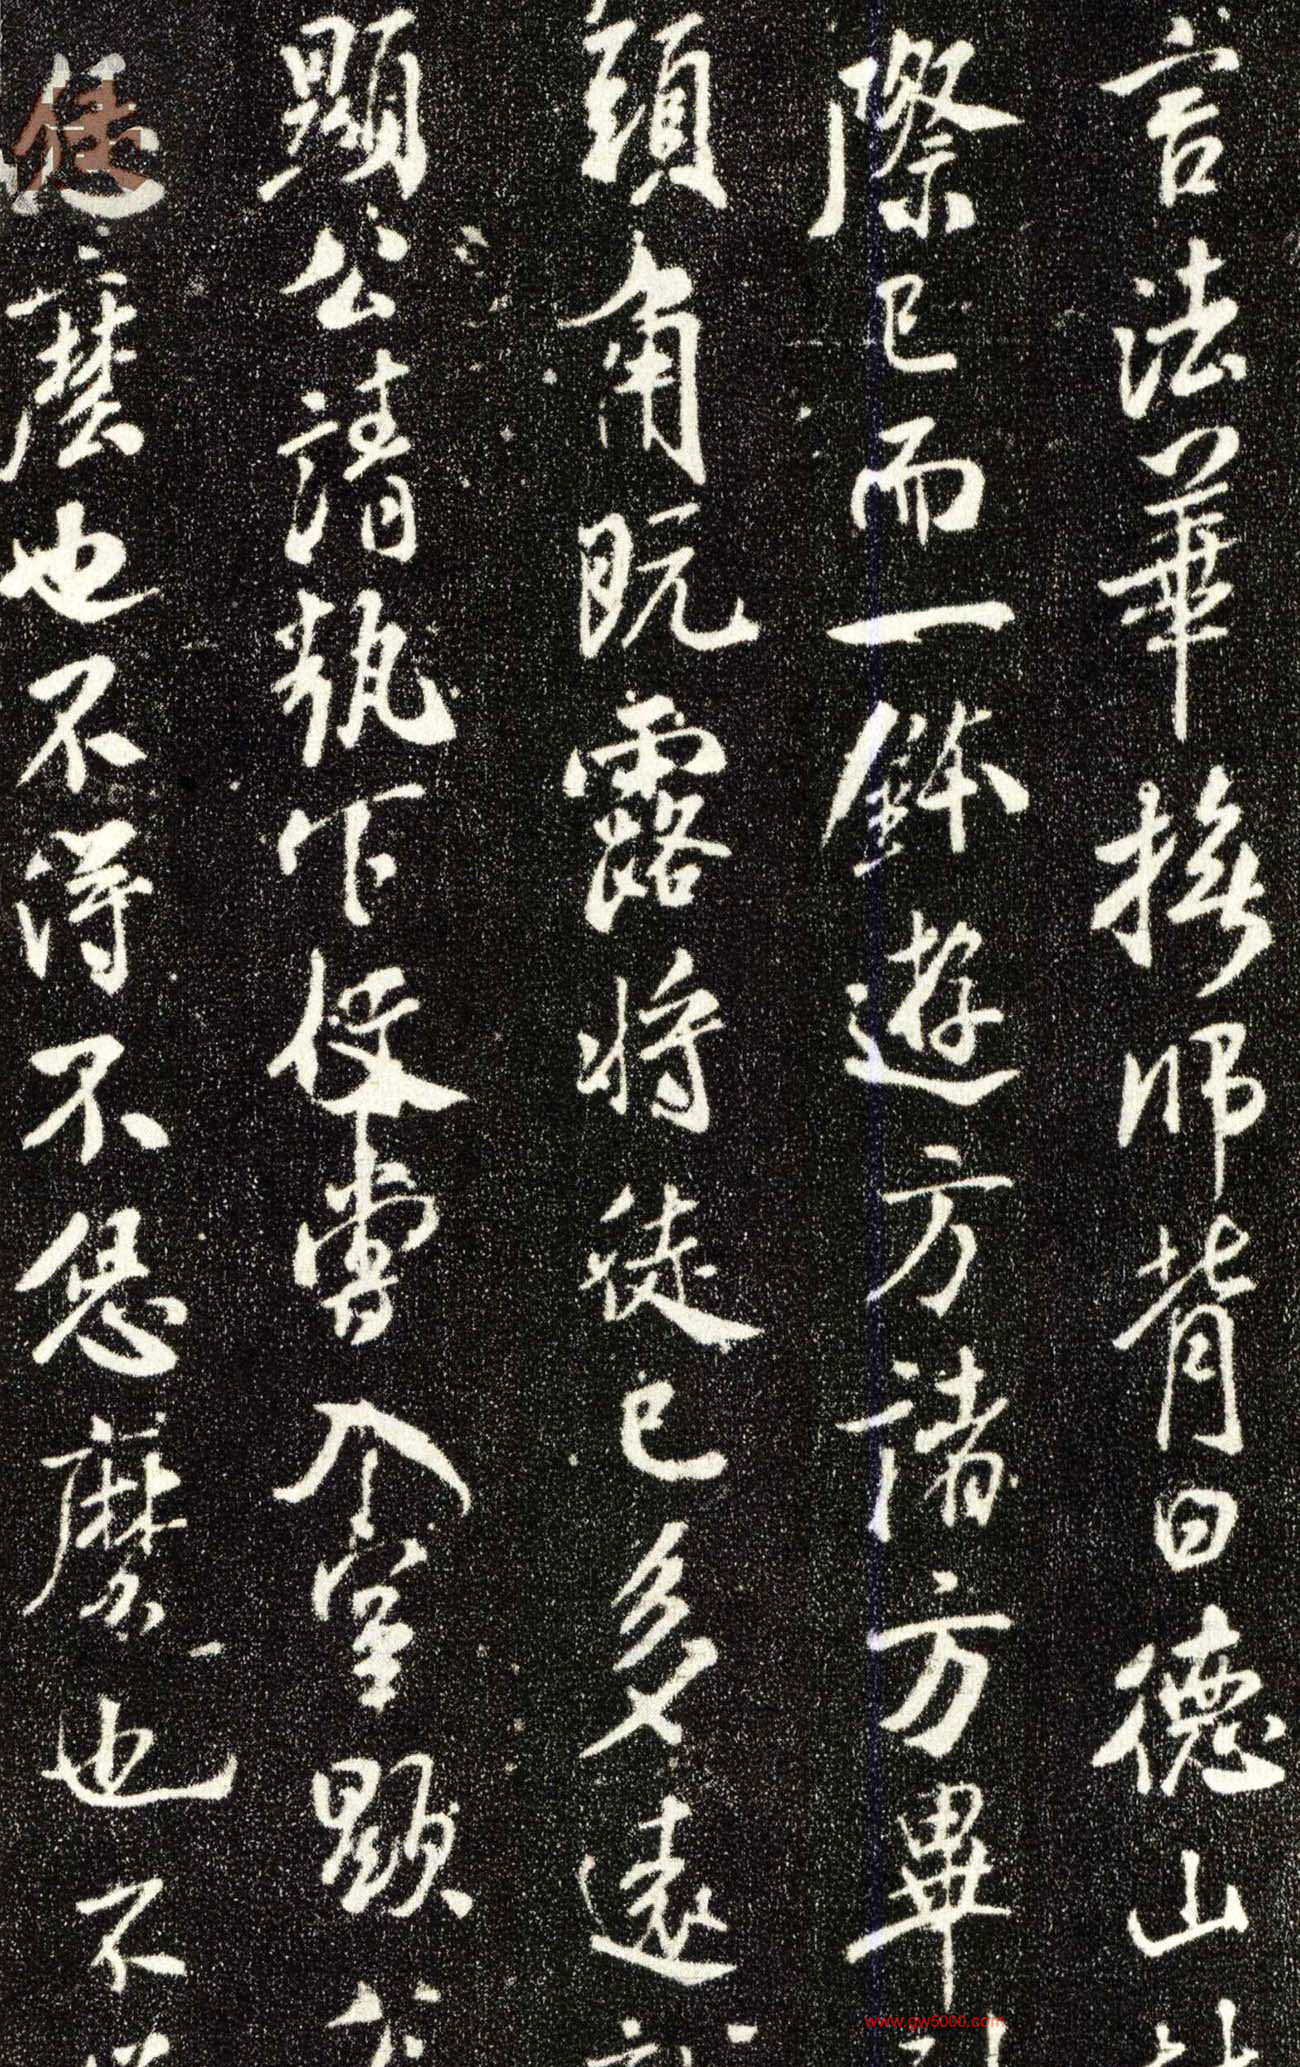 言法華撫師背曰德山
際已而一鉢遊方諸方畢
頭角既露將徒已多遠
顯公請執下侍者入室顯
恁麼也不得不恁麼也不
www.gw5000.com